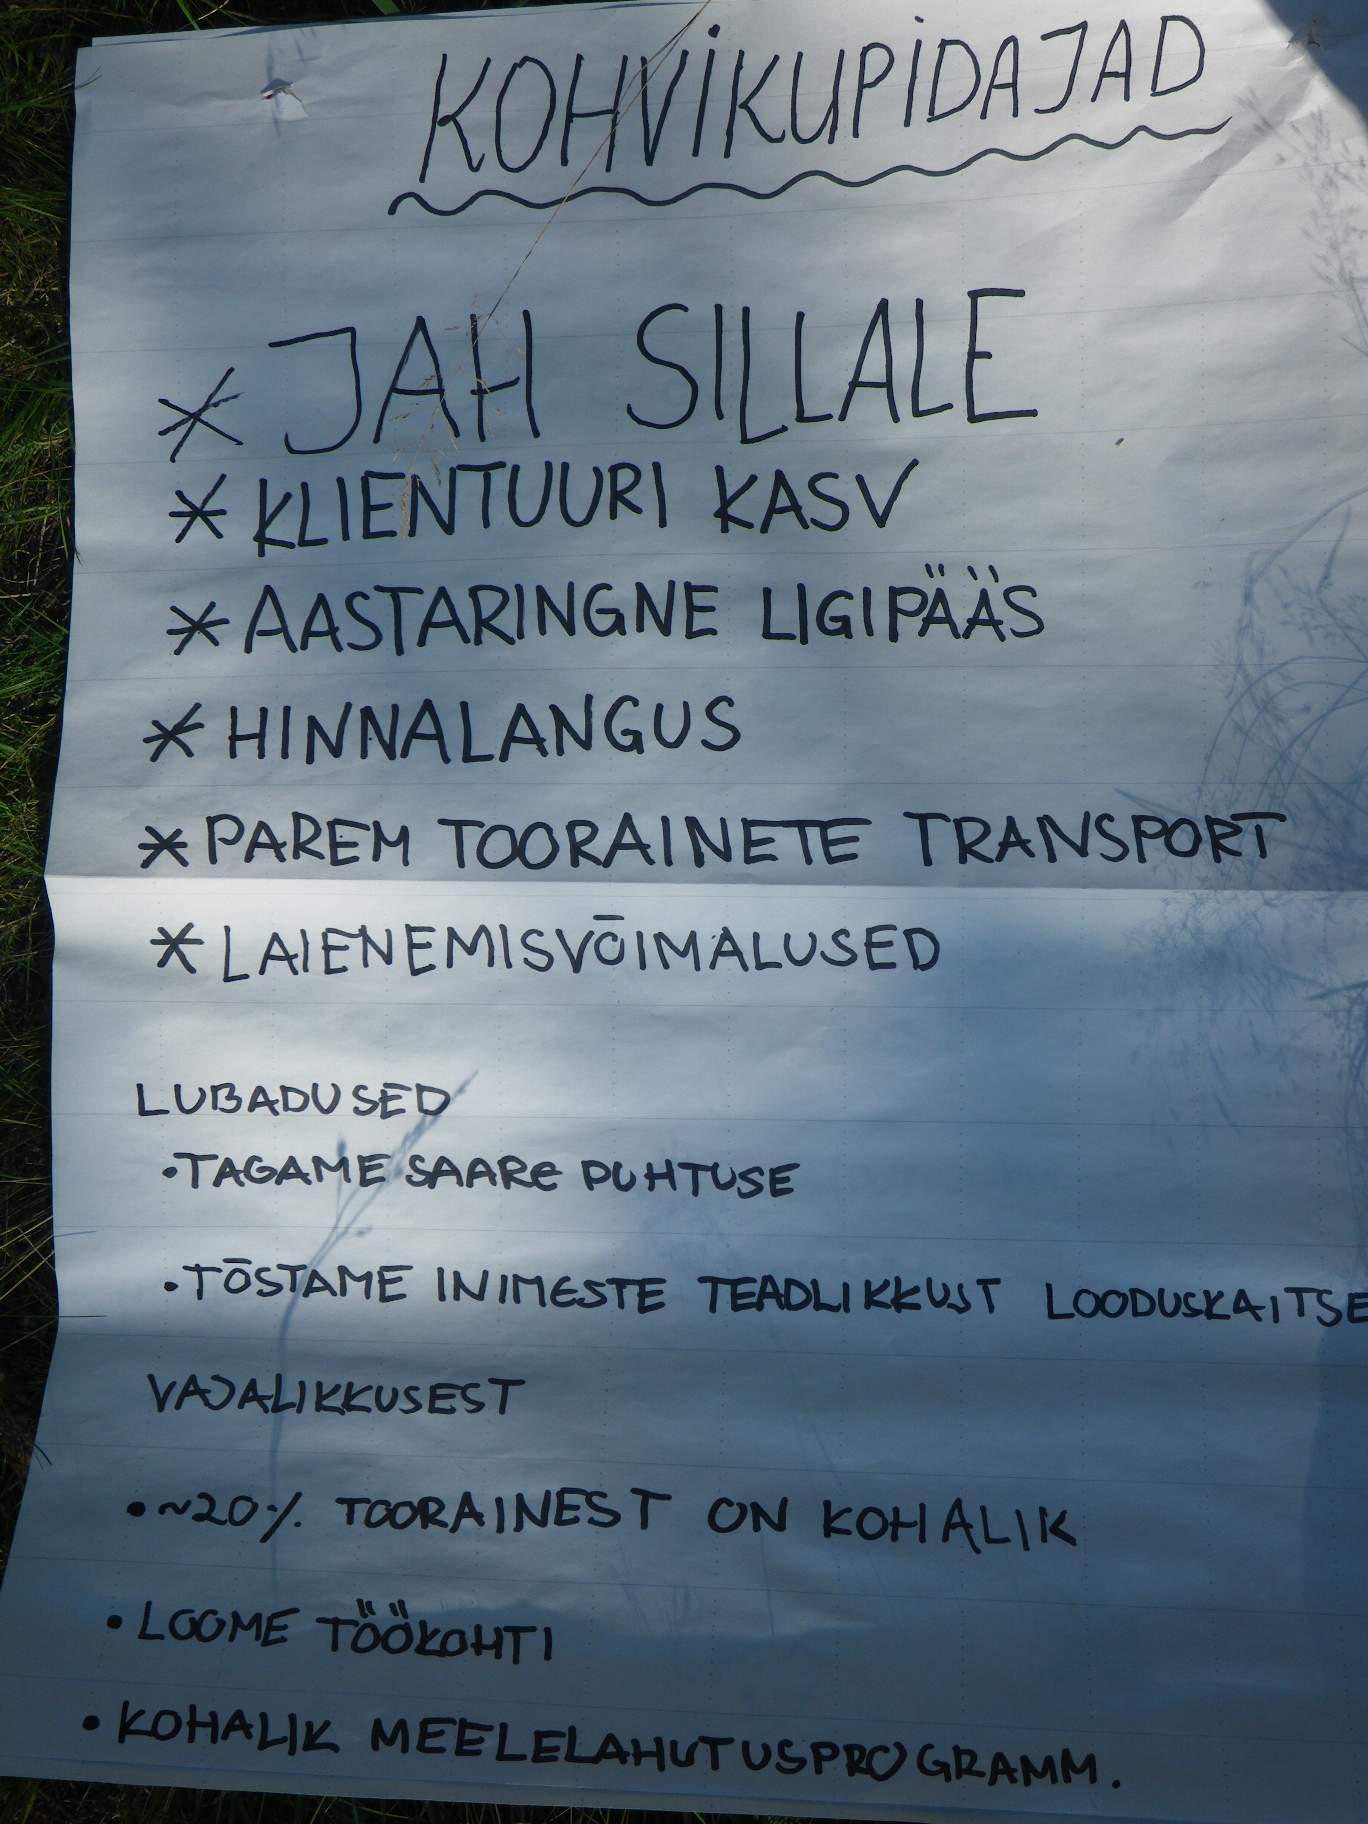 KOHVIKUPIDAJAD
* JAH SILLALE
* KLIENTUURI KASV
* AASTARINGNE LIGIPÄÄS
* HINNALANGUS
* PAREM TOORAINETE TRANSPORT
* LAIENEMISVÕIMALUSED
LUBADUSED
• TAGAME SAARE PUHTUSE
• TÕSTAME INIMESTE TEADLIKKUST LOODUSKAITSE
VAJALIKKUSEST
• ~20% TOORAINEST ON KOHALIK
• LOOME TÖÖKOHTI
• KOHALIK MEELELAHUTUSPROGRAMM.